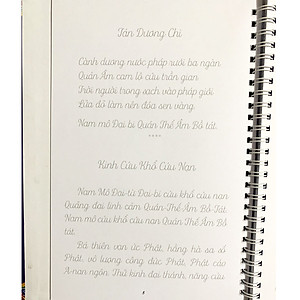 Tán Dương Chi
Cành dương nước pháp rưới ba ngàn
Quán Âm cam lồ cứu trần gian
Thời người trong sạch vào pháp giới
Lửa đỏ làm nên đóa sen vàng.
Nam mô Đại bi Quán Thế Âm Bồ tát.
****
Kinh Cứu Khổ Cứu Nạn
Nam Mô Đại từ Đại bi cứu khổ cứu nạn
Quảng đại linh cảm Quán Thế Âm Bồ Tát.
Nam mô cứu khổ cứu nạn Quán Thế Âm Bồ
tát.
Bá thiên vạn ức Phật, hằng hà sa số
Phật, vô lượng công đức Phật, Phật cáo
A-nan ngôn. Thử kinh đại thánh, năng cứu